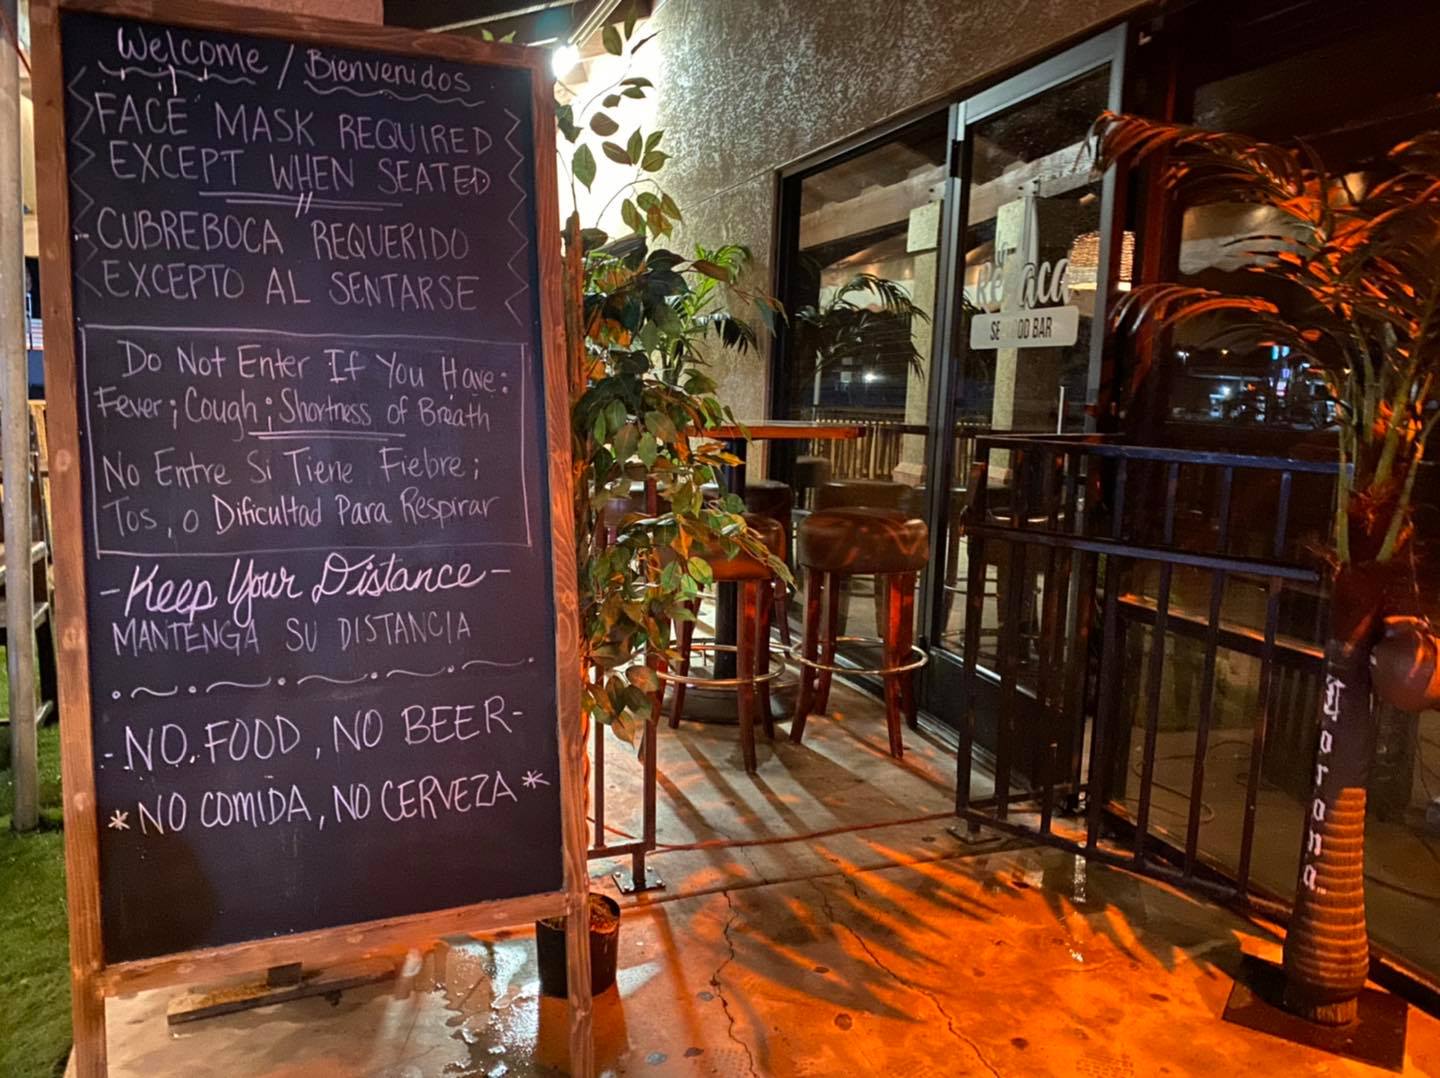 Welcome / Bienvenidos
FACE MASK REQUIRED
EXCEPT WHEN SEATED
CUBREBOCA REQUERIDO
EXCEPTO AL SENTARSE
Do Not Enter If You Have:
Fever; Cough; Shortness of Breath
No Entre Si Tiene Fiebre;
Tos, o Dificultad Para Respirar
-Keep Your Distance-
MANTENGA SU DISTANCIA
-NO FOOD, NO BEER-
*NO COMIDA, NO CERVEZA*
BAR
Corona